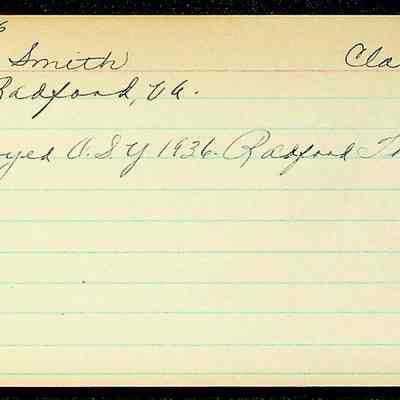 6
Smith Cla
Radford, Va.
yed O.S.Y 1936. Radford Th